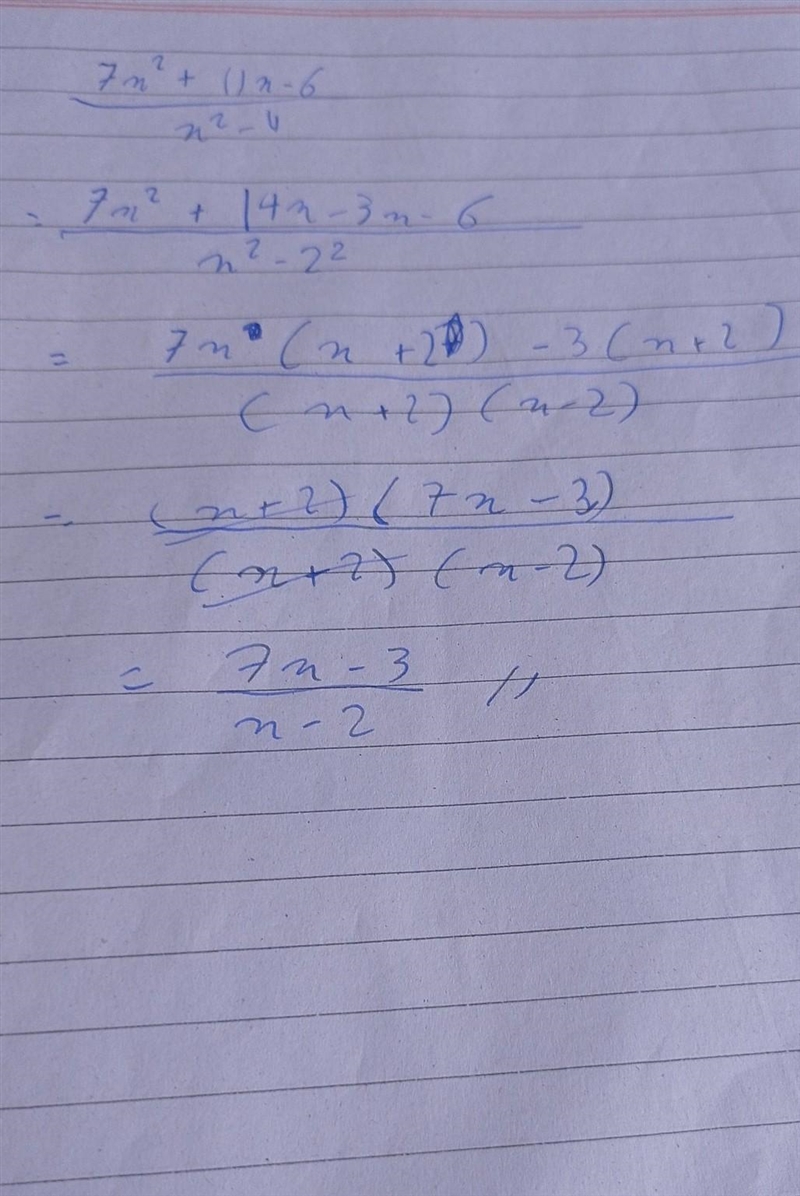 7x² + 11x - 6
x² - 4
= 7x² + 14x - 3x - 6
x² - 2²
= 7x (x + 2) - 3 (x + 2)
(x + 2) (x - 2)
= (x + 2) (7x - 3)
(x + 2) (x - 2)
= 7x - 3 //
x - 2